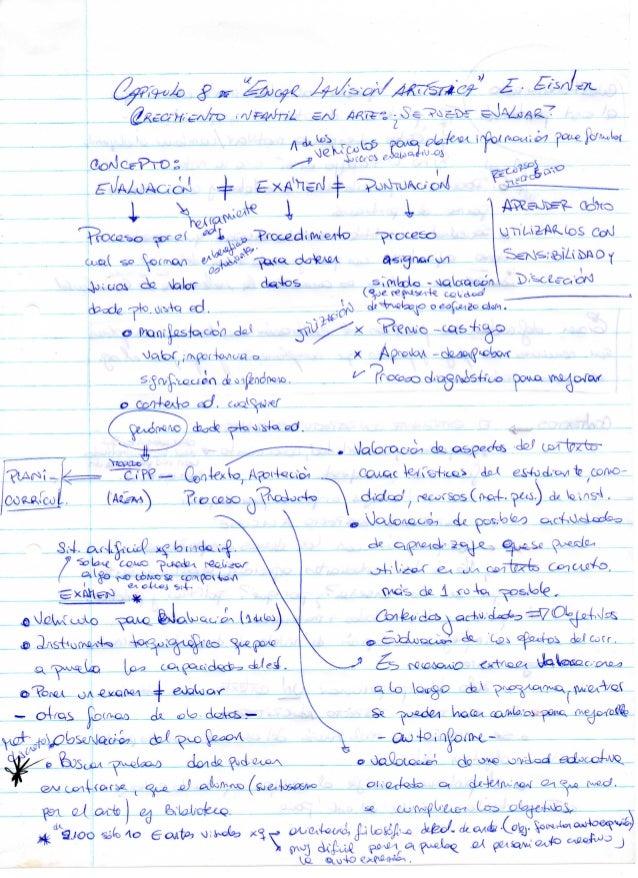 CAPÍTULO 8 "EDUCAR LA VISIÓN ARTÍSTICA" E. EISNER
CRECIMIENTO INFANTIL EN ARTE: ¿SE PUEDE EVALUAR?
1 de los
vehículos para obtener información para formular
juicios evaluativos
CONCEPTO:
EVALUACIÓN ≠ EXÁMEN ≠ PUNTUACIÓN
herramienta
Proceso por el
cual se forman
juicios de valor
desde pto. vista ed.
• manifestación del
valor, importancia o
significación de un fenómeno.
• contexto ed. cualquier
fenómeno desde pto vista ed.
Procedimiento
para obtener
datos
proceso
asignar un
símbolo - valoración
(que represente calidad
de trabajo o esfuerzo
UTILIZACIÓN
x Premio - castigo
x Aprobar - desaprobar
✓ Proceso diagnóstico para mejorar
RECURSOS
necesario
APRENDER CÓMO
UTILIZARLOS CON
SENSIBILIDAD Y
DISCRECIÓN
PLANI-
CURRÍCUL.
CIPP - Contexto, Aportación
(AREAS) Proceso y Producto
• Valoración de aspectos del contexto
características del estudiante, como-
didad, recursos (mat. pers.) de la inst.
• Valoración de posibles actividades
de aprendizaje que se pueden
utilizar en un contexto concreto,
más de 1 ruta posible.
Contenidos y actividades => Objetivos
• Evaluación de los efectos del curr.
Es necesario extraer valoraciones
a lo largo del programa, mientras
se pueden hacer cambios para mejorarlo
- autoinforme -
• Valoración de una unidad educativa
orientado a determinar en que med.
se cumplieron los objetivos
Sit. artificial xq brinda if.
sobre como pueden realizar
algo no cómo se comportan
en otras sit.
EXÁMEN *
• Vehículo para Evaluación (1 de los)
• Instrumento taquigráfico que pone
a prueba las capacidades del es.
• Poner un examen ≠ evaluar
- otras formas de ob. datos -
Observación del profesor
• Buscar pruebas donde pudieran
encontrarse, que el alumno (
por el arte) ej Biblioteca
* de 2100 sólo 10 E artes visuales xq orientación filosófica de ed. de arte (obj. fomentar autoexpresión)
muy difícil poner a prueba el pensamiento creativo y
la autoexpresión.